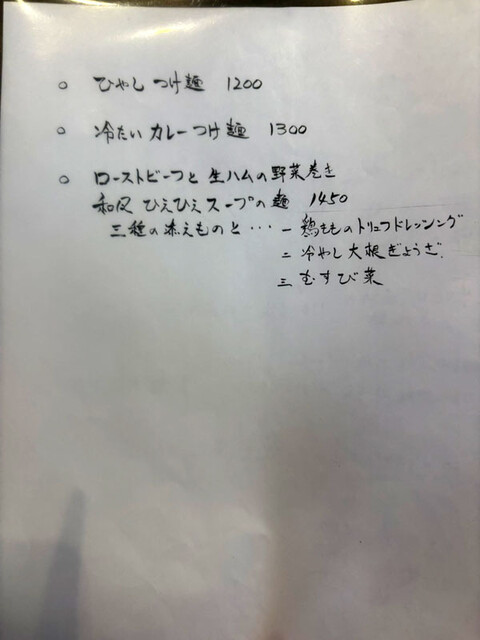 ○ ひやしつけ麺 1200
○ 冷たいカレーつけ麺 1300
○ ローストビーフと生ハムの野菜巻き
和風 ひえひえスープの麺 1450
三種の添えものと・・・ 一 鶏もものトリュフドレッシング
二 冷やし大根ぎょうざ
三 むすび菜